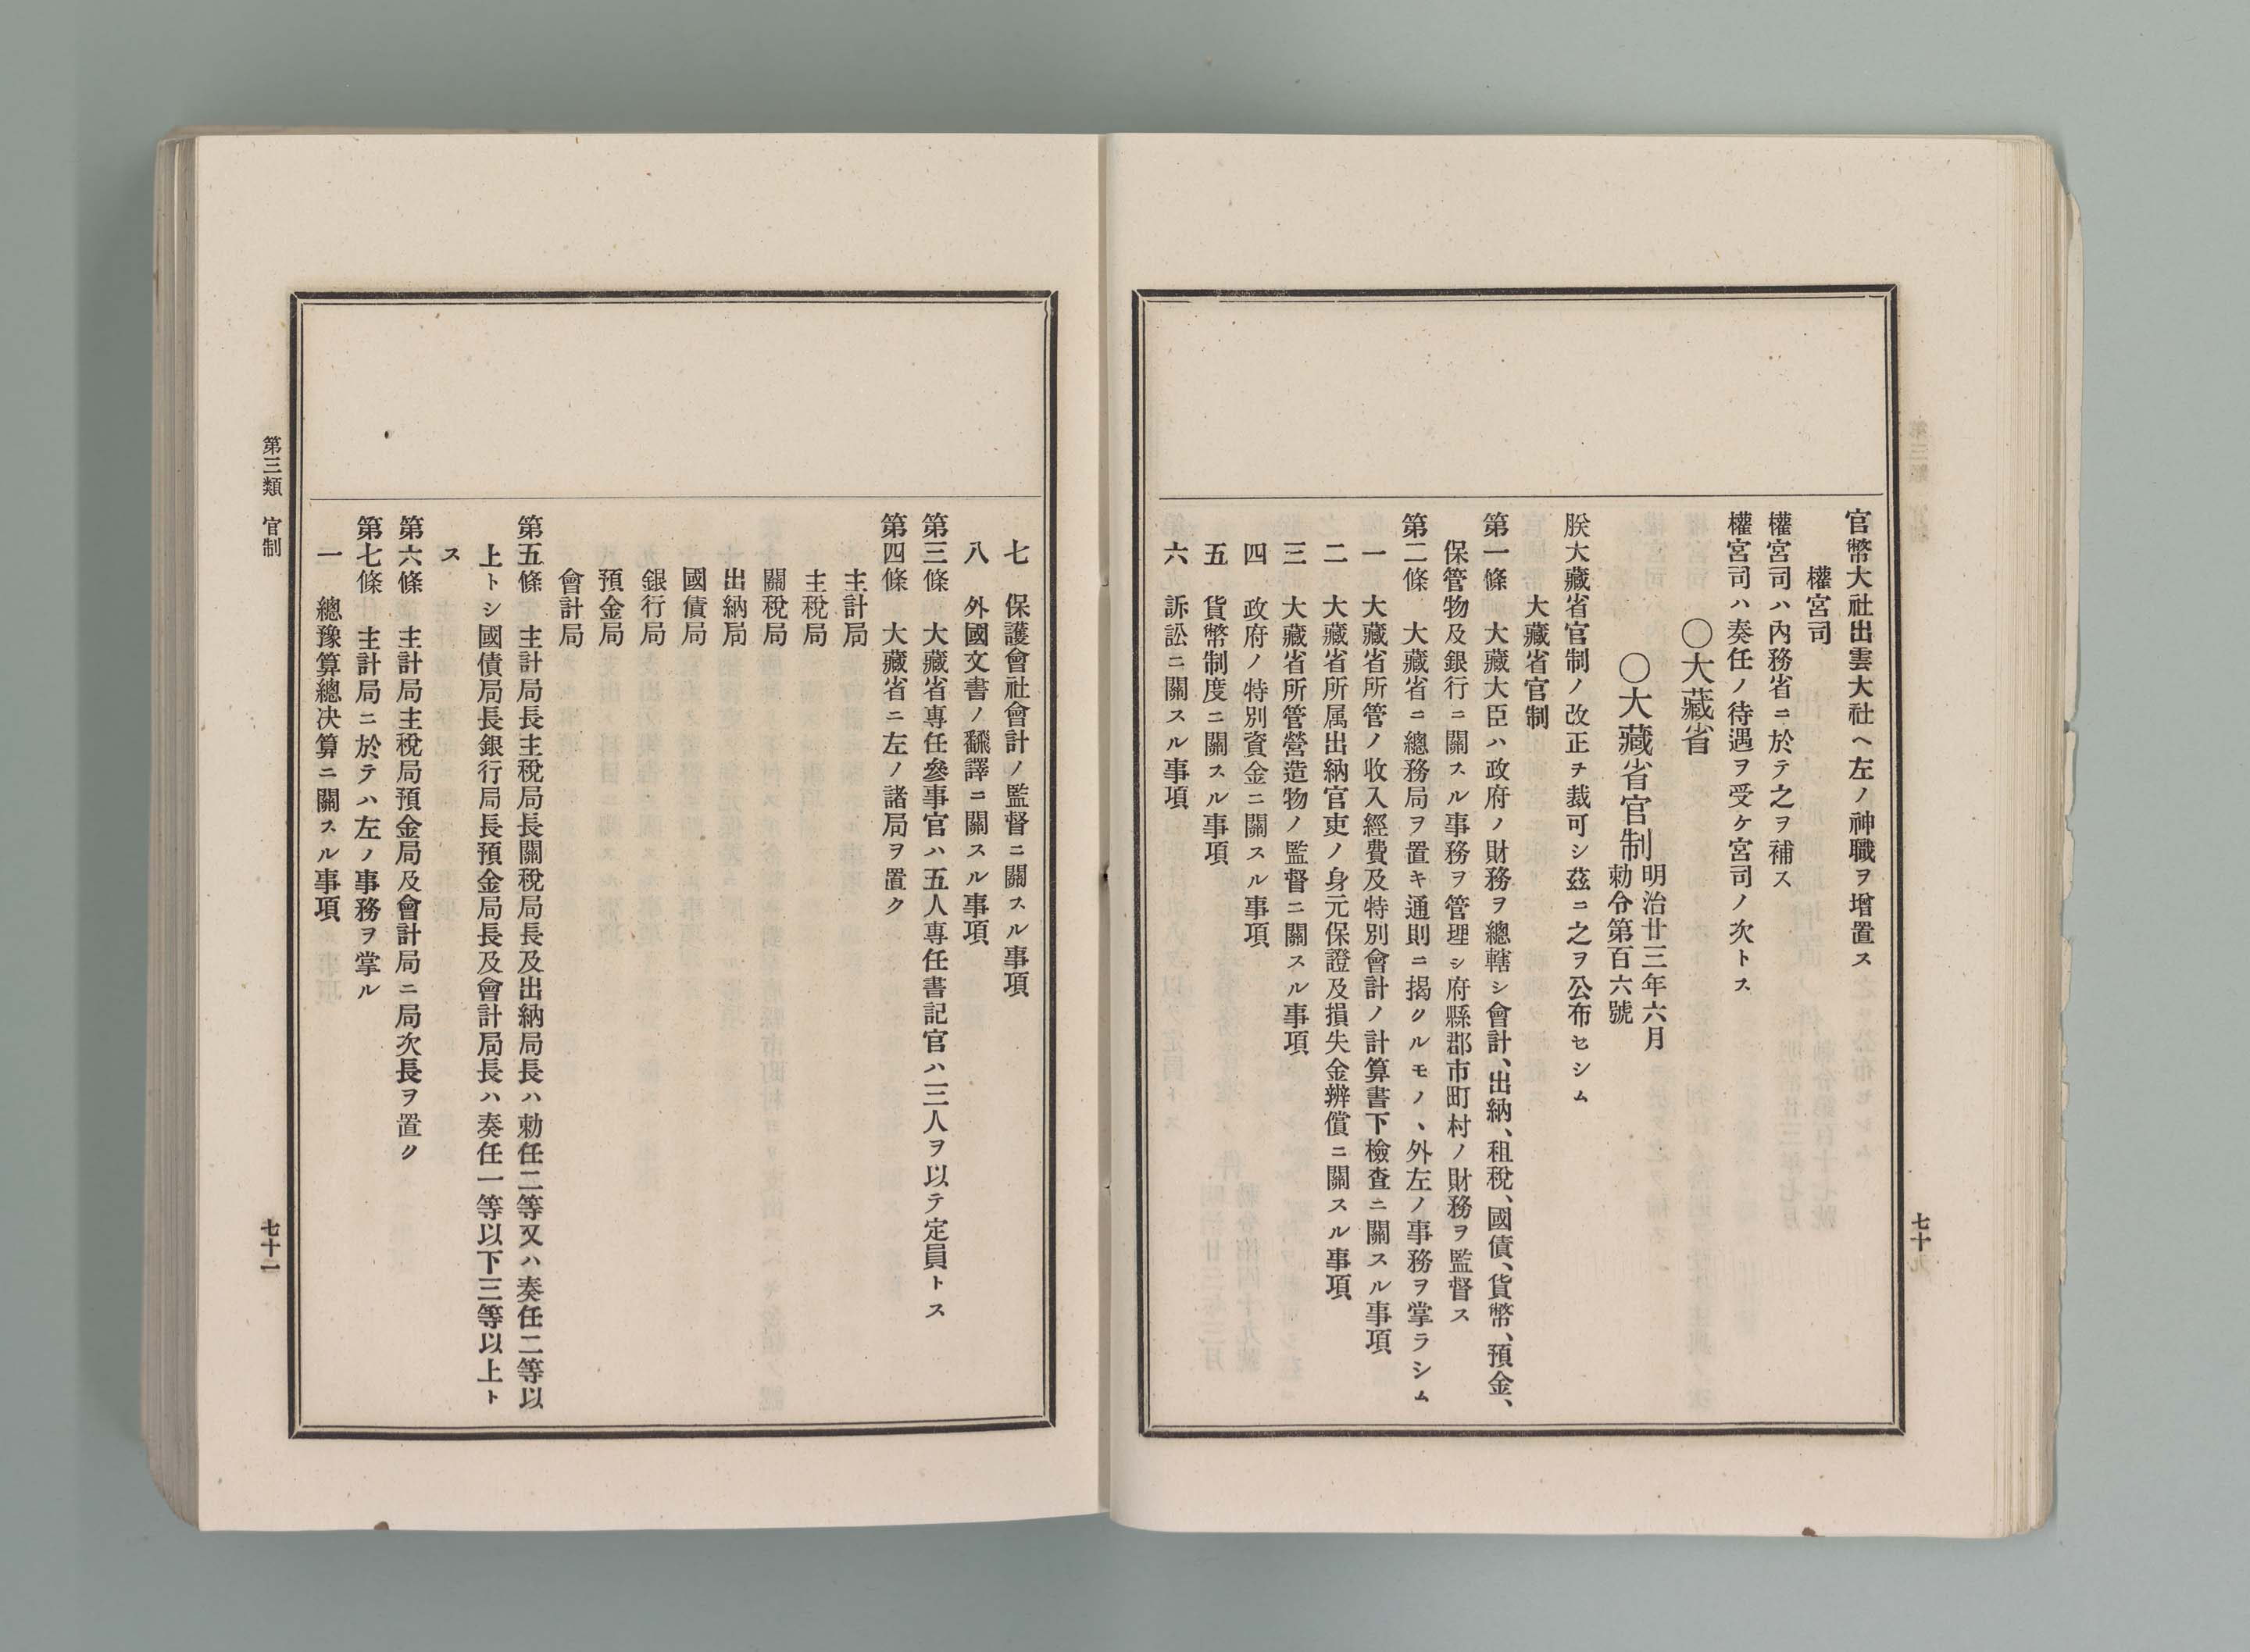 官幣大社出雲大社ヘ左ノ神職ヲ增置ス
權宮司
權宮司ハ內務省ニ於テ之ヲ補ス
權宮司ハ奏任ノ待遇ヲ受ケ宮司ノ次トス
〇大藏省
〇大藏省官制
明治廿三年六月
勅令第百六號
朕大藏省官制ノ改正ヲ裁可シ茲ニ之ヲ公布セシム
大藏省官制
第一條 大藏大臣ハ政府ノ財務ヲ總轄シ會計、出納、租稅、國債、貨幣、預金、
保管物及銀行ニ關スル事務ヲ管理シ府縣郡市町村ノ財務ヲ監督ス
第二條 大藏省ニ總務局ヲ置キ通則ニ揭クルモノヽ外左ノ事務ヲ掌ラシム
一 大藏省所管ノ收入經費及特別會計ノ計算書下檢查ニ關スル事項
二 大藏省所属出納官吏ノ身元保證及損失金辨償ニ關スル事項
三 大藏省所管營造物ノ監督ニ關スル事項
四 政府ノ特別資金ニ關スル事項
五 貨幣制度ニ關スル事項
六 訴訟ニ關スル事項
七十
七 保護會社會計ノ監督ニ關スル事項
八 外國文書ノ飜譯ニ關スル事項
第三條 大藏省專任參事官ハ五人專任書記官ハ三人ヲ以テ定員トス
第四條 大藏省ニ左ノ諸局ヲ置ク
主計局
主稅局
關稅局
出納局
國債局
銀行局
預金局
會計局
第五條 主計局長主稅局長關稅局長及出納局長ハ勅任二等又ハ奏任二等以
上トシ國債局長銀行局長預金局長及會計局長ハ奏任一等以下三等以上ト
ス
第六條 主計局主稅局預金局及會計局ニ局次長ヲ置ク
第七條 主計局ニ於テハ左ノ事務ヲ掌ル
一 總豫算總決算ニ關スル事項
第三類 官制
七十一